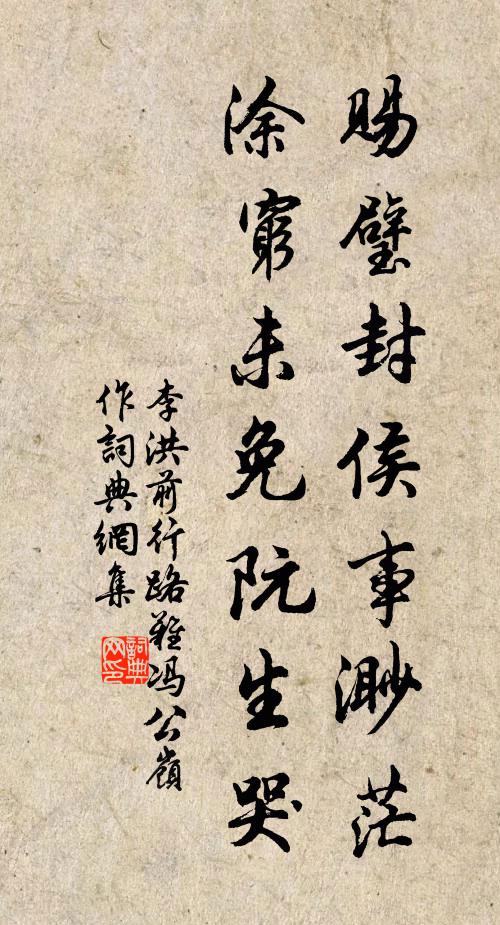 賜璧封侯事渺茫
涂窮未免阮生哭
李洪前行路難馮公嶺
作詞典網集
詞典网印